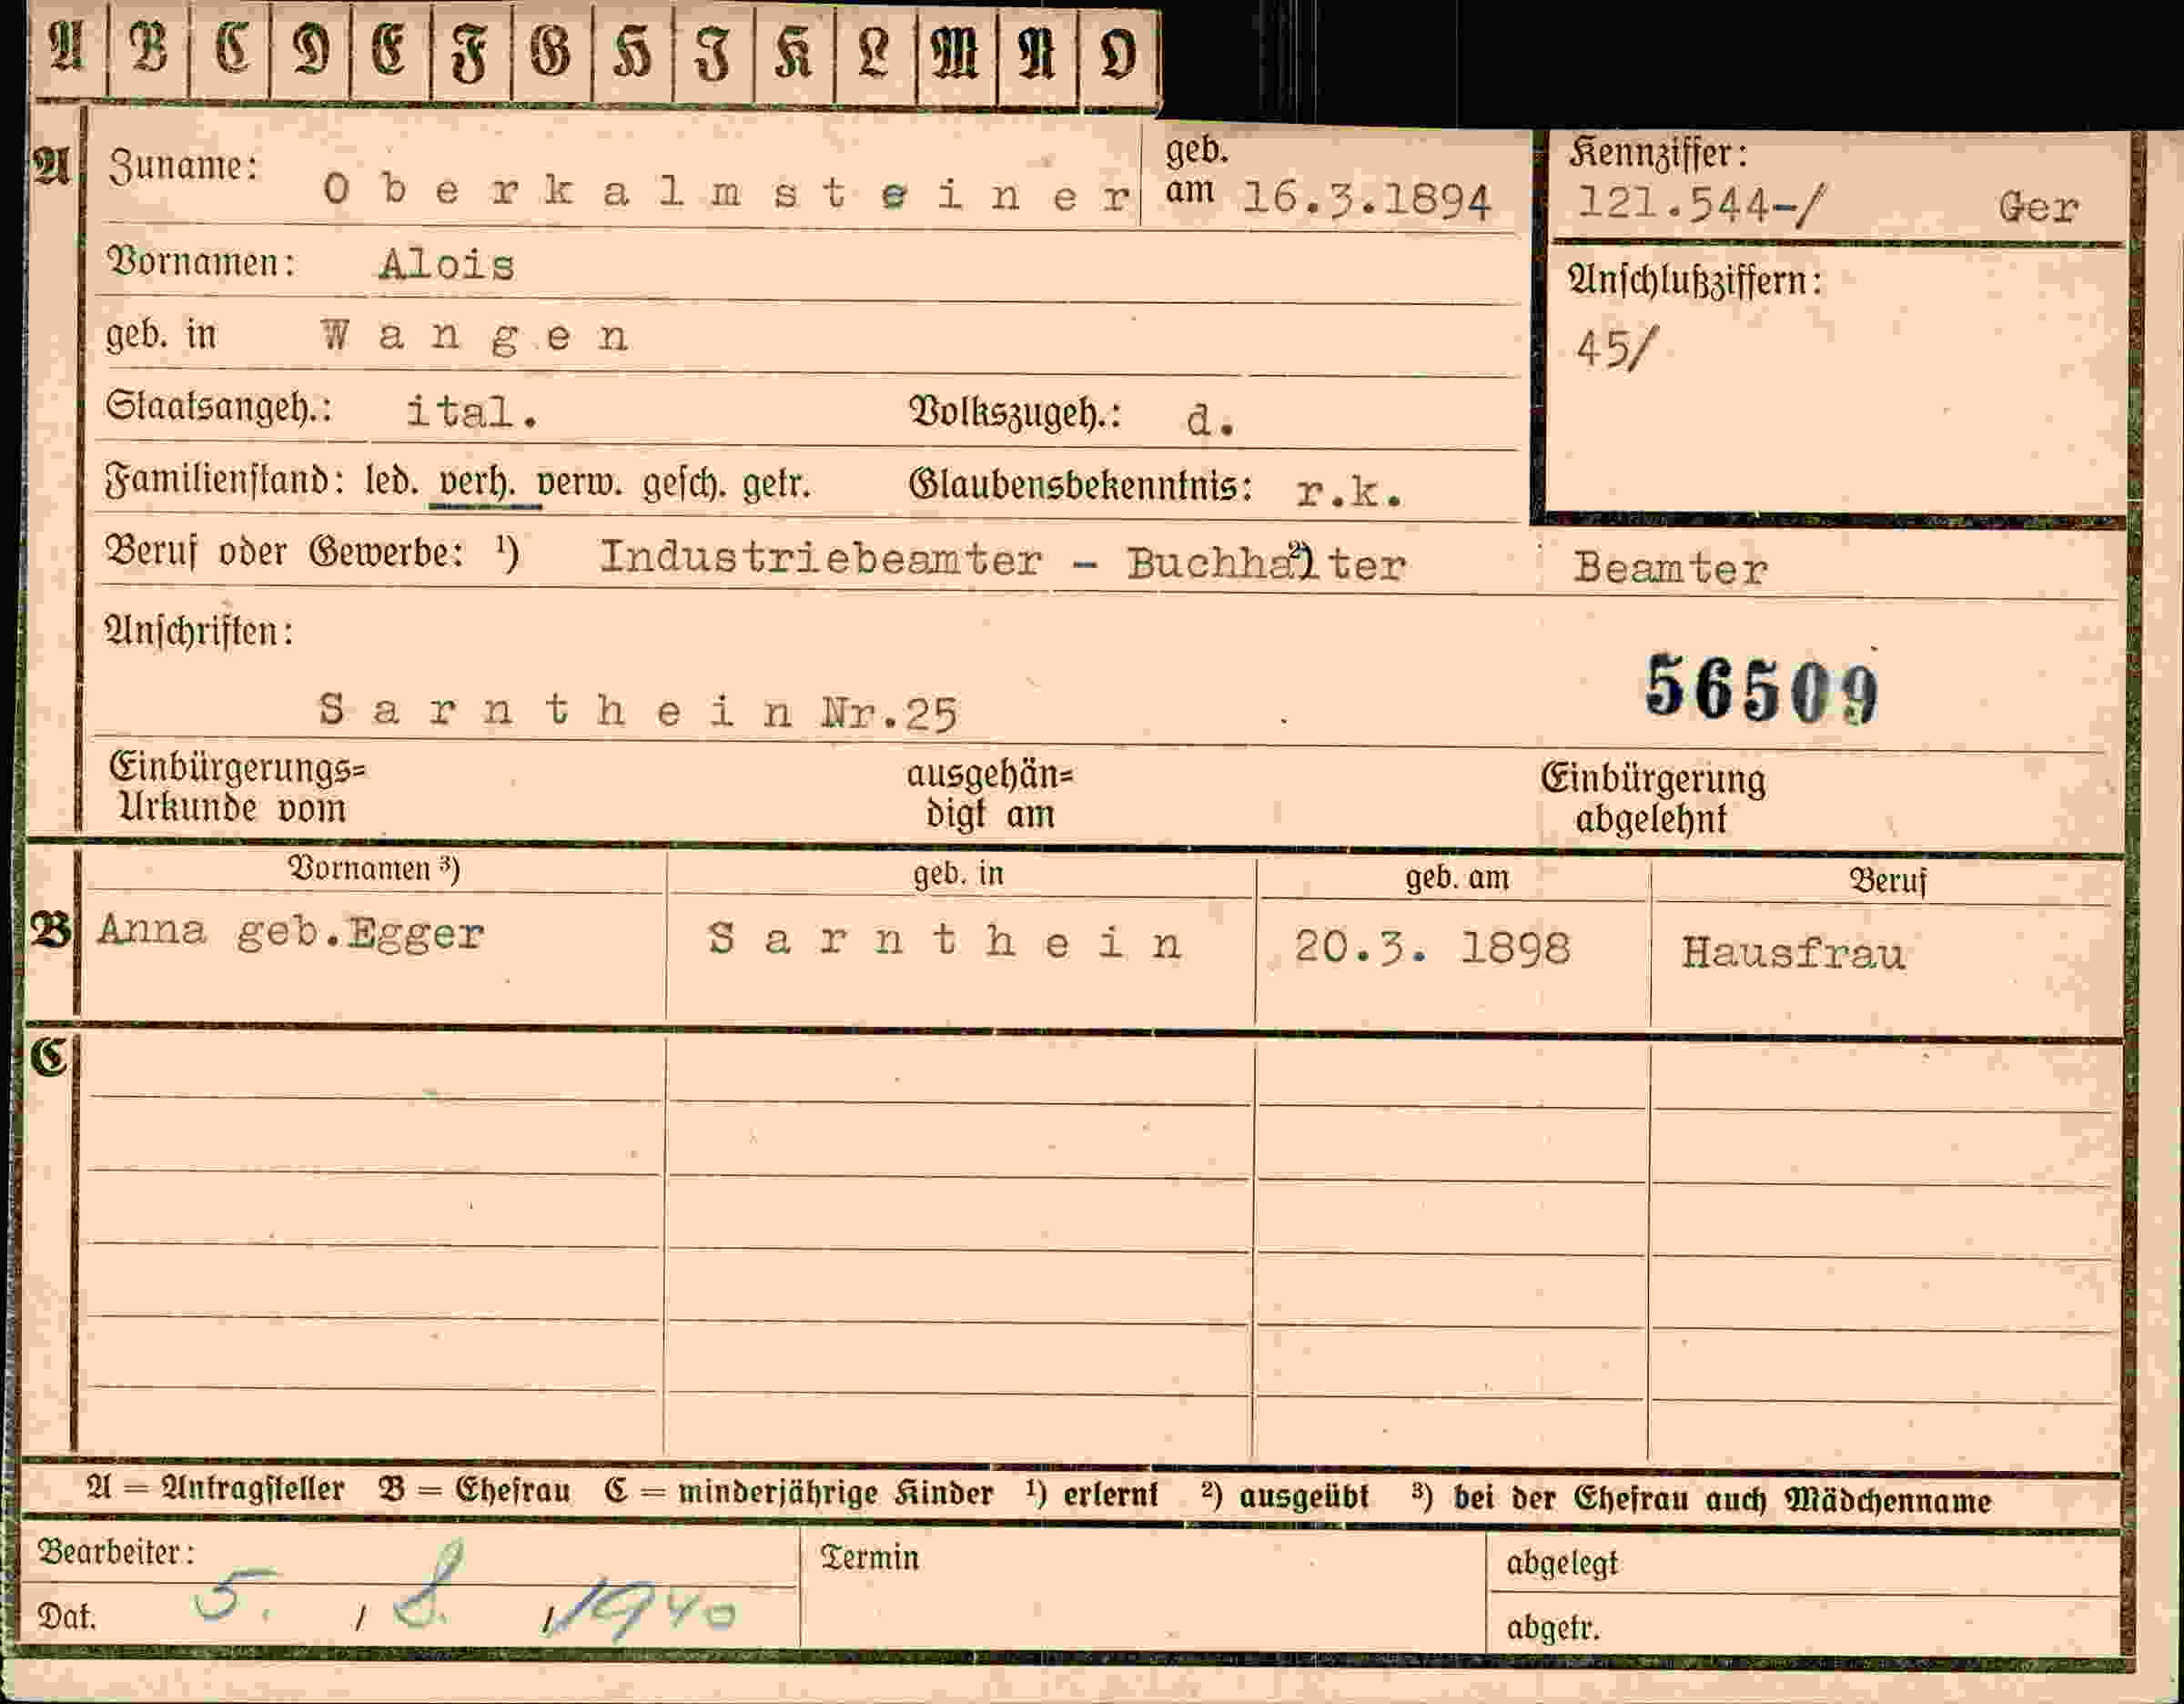 A B C D E F G H I K L M N O
A Zuname: Oberkalmsteiner geb. am 16.3.1894 Kennziffer: 121.544-/ Ger
Vornamen: Alois
Anschlußziffern:
geb. in Wangen
45/
Staatsangeh.: ital. Volkszugeh.: d.
Familienstand: led. verh. verw. gesch. getr. Glaubensbekenntnis: r.k.
Beruf oder Gewerbe: ¹) Industriebeamter - Buchhalter ²) Beamter
Anschriften:
56509
Sarnthein Nr.25
Einbürgerungs= ausgehän= Einbürgerung
Urkunde vom digt am abgelehnt
Vornamen ³) geb. in geb. am Beruf
B Anna geb.Egger Sarnthein 20.3. 1898 Hausfrau
C
A = Antragsteller B = Ehefrau C = minderjährige Kinder ¹) erlernt ²) ausgeübt ³) bei der Ehefrau auch Mädchenname
Bearbeiter: Termin abgelegt
Dat. 5. / 8. / 1940 abgetr.